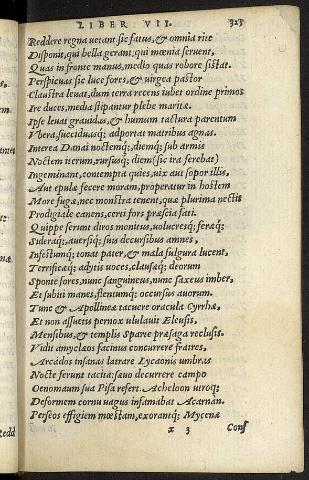 LIBER VII. 323
Reddere regna uetant. sic fatus, & omnia rite
Disponit, qui bella gerant, qui mœnia seruent,
Quas in fronte manus, medio quas robore sistat.
Perspicuas sic luce fores, & uirgea pastor
Claustra leuat, dum terra recens iubet ordine primos
Ire duces, media stipantur plebe maritæ.
Ipse leuat grauidas, & humum tactura parentum
Vbera, succiduasq; adportat matribus agnas.
Interea Danai noctemq; diemq; sub armis
Noctem iterum, rursusq; diem (sic ira ferebat)
Ingeminant, contempta quies, uix aut sopor illis,
Aut epulæ fecere moram, properatur in hostem
More fugæ, nec monstra tenent, quæ plurima nectit
Prodigiale canens, certi fors præscia fati.
Quippe ferunt diros monitus, uolucresq; feræq;
Sideraq; auersiq; suis decursibus amnes,
Infestumq; tonat pater, & mala fulgura lucent,
Terrificæq; adytis uoces, clausæq; deorum
Sponte fores, nunc sanguineus, nunc saxeus imber,
Et subiti manes, flentumq; occursus auorum.
Tunc & Apollineæ tacuere oracula Cyrrhæ,
Et non assuetis pernox ululauit Eleusis,
Mensibus, & templis Sparte præsaga reclusis.
Vidit amyclæos facinus concurrere fratres,
Arcados insanas latrare Lycaonis umbras
Nocte ferunt tacita: sæuo decurrere campo
Oenomaum sua Pisa refert. Acheloon utroq;
Deformem cornu uagus infamabat Acarnan.
Perseos effigiem mœstam, exorantq; Mycenæ
x 3 Conf